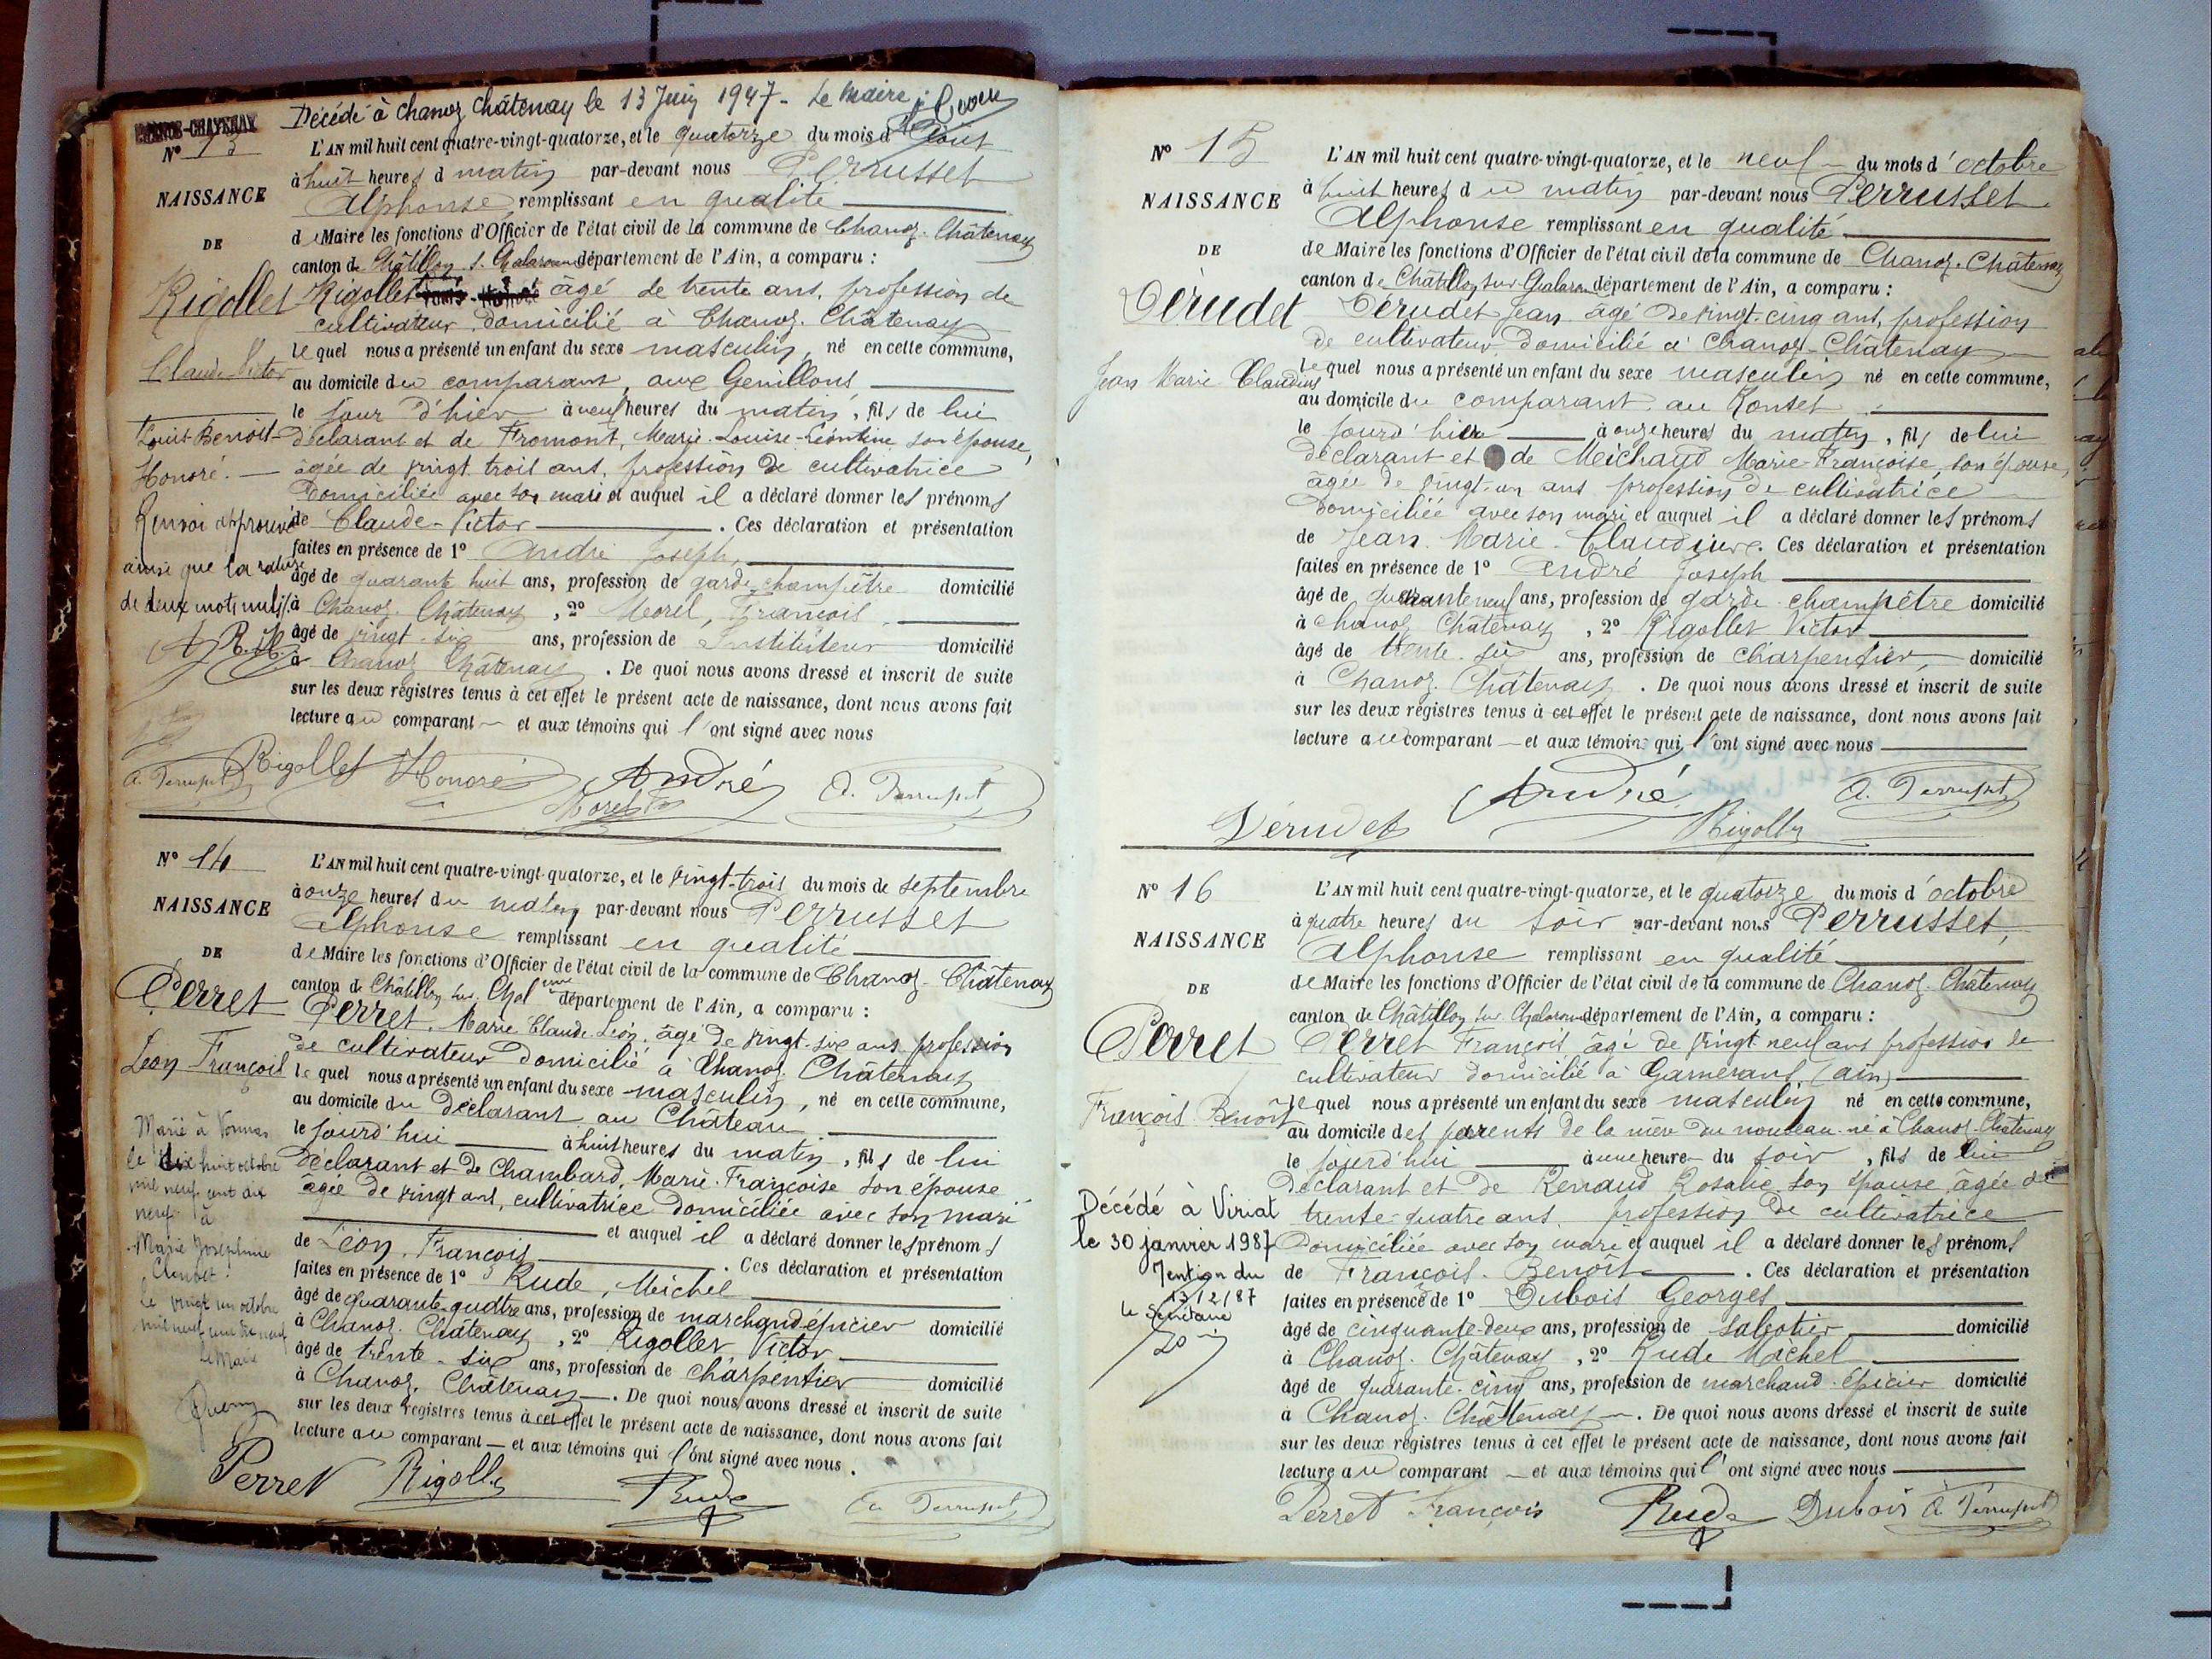 Décédé à Chanoz Châtenay le 13 Juin 1947 - Le Maire :
CHANOZ-CHATENAY
N° 13
NAISSANCE
DE
Rigollet
Claude Victor
Louis-Benoit-
Honoré. —
Renvoi approuvé
ainsi que la rature
de deux mots nuls
L'AN mil huit cent quatre-vingt-quatorze, et le quatorze du mois d'Août
à huit heures d matin par-devant nous Perrusset
Alphonse remplissant en qualité
de Maire les fonctions d'Officier de l'état civil de la commune de Chanoz-Châtenay
canton de Châtillon s. Chalaronne département de l'Ain, a comparu :
Rigollet âgé de trente ans, profession de
cultivateur, domicilié à Chanoz-Châtenay
lequel nous a présenté un enfant du sexe masculin, né en cette commune,
au domicile du comparant, aux Genillons
le jour d'hier à neuf heures du matin, fils de lui
déclarant et de Fromont, Marie-Louise-Léontine son épouse,
âgée de vingt trois ans, profession de cultivatrice
domiciliée avec son mari et auquel il a déclaré donner les prénoms
de Claude-Victor . Ces déclaration et présentation
faites en présence de 1° André Joseph,
âgé de quarante huit ans, profession de garde-champêtre domicilié
à Chanoz-Châtenay, 2° Morel, François,
âgé de vingt-six ans, profession de Instituteur domicilié
à Chanoz Châtenay . De quoi nous avons dressé et inscrit de suite
sur les deux registres tenus à cet effet le présent acte de naissance, dont nous avons fait
lecture au comparant — et aux témoins qui l'ont signé avec nous
A. Perrusset Rigollet Honoré André A. Perrusset
Morel
N° 14
NAISSANCE
DE
Perret
Léon François
Marié à Vonnas
le dix huit octobre
mil neuf cent dix
neuf à
Marie Joséphine
le vingt un octobre
mil neuf cent dix neuf
Le Maire
L'AN mil huit cent quatre-vingt-quatorze, et le vingt-trois du mois de septembre
à onze heures du matin par-devant nous Perrusset
Alphonse remplissant en qualité
de Maire les fonctions d'Officier de l'état civil de la commune de Chanoz-Châtenay
canton de Châtillon sur Chalnne département de l'Ain, a comparu :
Perret, Marie Claude Léon, âgé de vingt-six ans profession
de cultivateur domicilié à Chanoz-Châtenay
lequel nous a présenté un enfant du sexe masculin, né en cette commune,
au domicile du déclarant au Château
le jourd'hui à huit heures du matin, fils de lui
déclarant et de Chambard, Marie-Françoise son épouse
âgée de vingt ans, cultivatrice domiciliée avec son mari
et auquel il a déclaré donner les prénoms
de Léon, François . Ces déclaration et présentation
faites en présence de 1° Rude, Michel
âgé de quarante-quatre ans, profession de marchand-épicier domicilié
à Chanoz-Châtenay, 2° Rigollet, Victor
âgé de trente-six ans, profession de charpentier domicilié
à Chanoz, Châtenay —. De quoi nous avons dressé et inscrit de suite
sur les deux registres tenus à cet effet le présent acte de naissance, dont nous avons fait
lecture au comparant — et aux témoins qui l'ont signé avec nous.
Perret Rigollet Rude A. Perrusset
N° 15
NAISSANCE
DE
Dérudet
Jean Marie Claudius
L'AN mil huit cent quatre-vingt-quatorze, et le neuf — du mois d'octobre
à huit heures du matin par-devant nous Perrusset
Alphonse remplissant en qualité
de Maire les fonctions d'Officier de l'état civil de la commune de Chanoz-Châtenay
canton de Châtillon sur Chalaronne département de l'Ain, a comparu :
Dérudet Jean âgé de vingt-cinq ans, profession
de cultivateur domicilié à Chanoz-Châtenay
lequel nous a présenté un enfant du sexe masculin né en cette commune,
au domicile du comparant au Ronset
le jourd'hier à onze heures du matin, fils de lui
déclarant et de Meichaud Marie-Françoise, son épouse,
âgée de vingt-un ans profession de cultivatrice
domiciliée avec son mari et auquel il a déclaré donner les prénoms
de Jean-Marie-Claudius. Ces déclaration et présentation
faites en présence de 1° André Joseph
âgé de quarante neuf ans, profession de garde-champêtre domicilié
à Chanoz Châtenay, 2° Rigollet Victor
âgé de trente-six ans, profession de charpentier, domicilié
à Chanoz-Châtenay . De quoi nous avons dressé et inscrit de suite
sur les deux registres tenus à cet effet le présent acte de naissance, dont nous avons fait
lecture au comparant — et aux témoins qui l'ont signé avec nous
Dérudet André Rigollet A. Perrusset
N° 16
NAISSANCE
DE
Perret
François Benoît
Décédé à Viriat
le 30 janvier 1987
Mention du
13/2/87
le Secrétaire
L'AN mil huit cent quatre-vingt-quatorze, et le quatorze du mois d'octobre
à quatre heures du soir par-devant nous Perrusset,
Alphonse remplissant en qualité
de Maire les fonctions d'Officier de l'état civil de la commune de Chanoz-Châtenay
canton de Châtillon sur Chalaronne département de l'Ain, a comparu :
Perret François âgé de vingt-neuf ans profession de
cultivateur domicilié à Garnerans (ain)
lequel nous a présenté un enfant du sexe masculin né en cette commune,
au domicile des parents de la mère du nouveau-né à Chanoz-Châtenay
le jourd'hui à une heure du soir, fils de lui
déclarant et de Renaud Rosalie son épouse âgée de
trente-quatre ans, profession de cultivatrice
domiciliée avec son mari et auquel il a déclaré donner les prénoms
de François-Benoît . Ces déclaration et présentation
faites en présence de 1° Dubois Georges
âgé de cinquante-deux ans, profession de sabotier domicilié
à Chanoz-Châtenay, 2° Rude Michel
âgé de quarante-cinq ans, profession de marchand-épicier domicilié
à Chanoz-Châtenay —. De quoi nous avons dressé et inscrit de suite
sur les deux registres tenus à cet effet le présent acte de naissance, dont nous avons fait
lecture au comparant — et aux témoins qui l'ont signé avec nous
Perret François Rude Dubois A. Perrusset